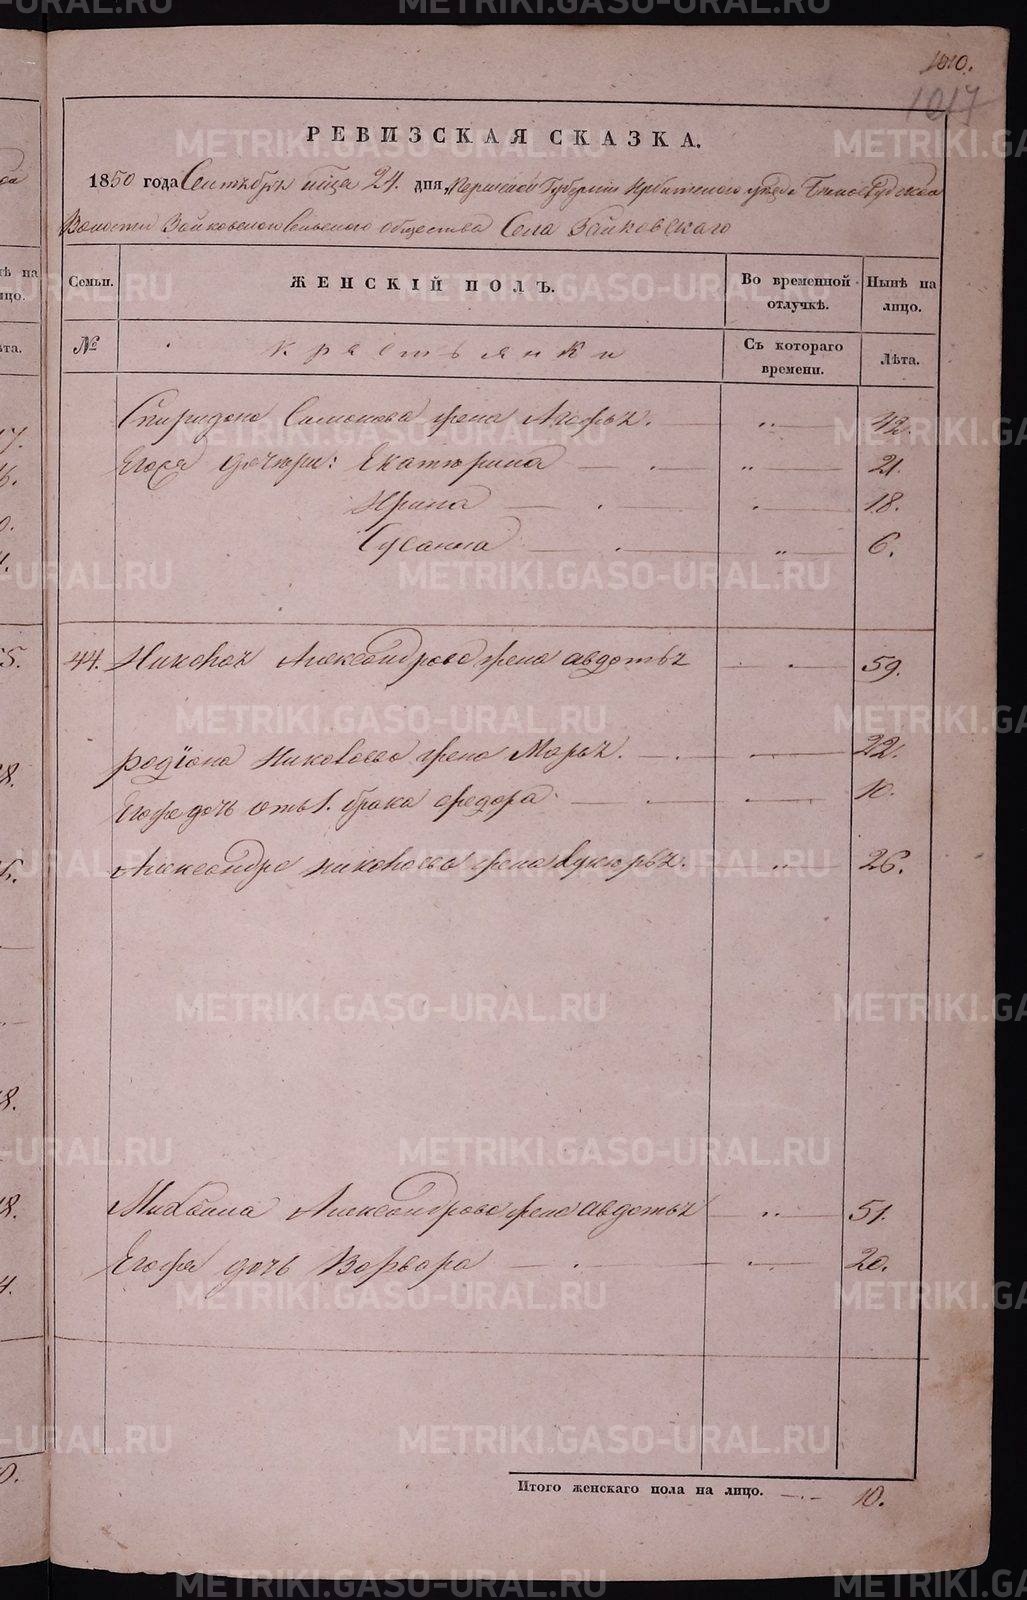 1010.
1017
РЕВИЗСКАЯ СКАЗКА.
1850 года Сентября мца 24. дня, Пермской Губернии Ирбитского уезда Бело-Слудской
Волости Зайковского сельского общества Села Зайковскаго
Семьи. ЖЕНСКІЙ ПОЛЪ. Во временной отлучкѣ. Нынѣ на лицо.
№ Крестьянки Съ котораго времени. Лѣта.
Спиридона жена Агафья. 42.
Егора дочери: Екатерина 21.
Ирина 18.
Сусанна 6.
44. Александрова жена авдотья 59.
родіона жена Марья. 22.
Егоже дочь отъ 1. брака федора 10.
Александра жена Лукерья. 26.
Михаила Александрова жена авдотья 51.
Егожа дочь Варвара 20.
Итого женскаго пола на лицо. 10.
METRIKI.GASO-URAL.RU